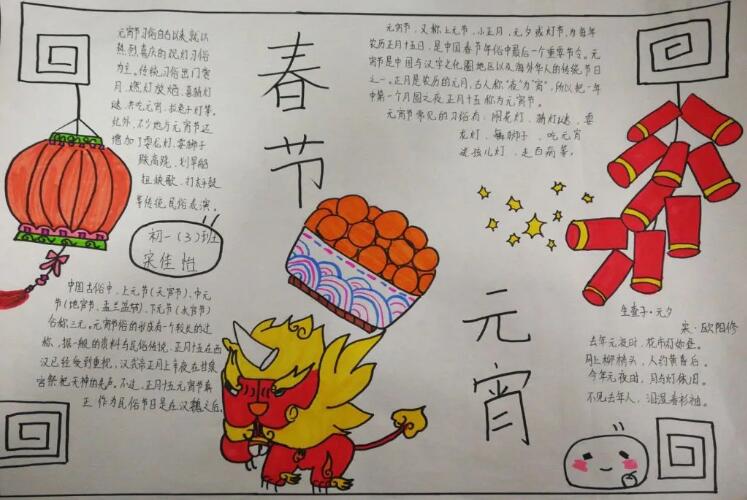 元宵节习俗自古以来就以
热烈喜庆的观灯习俗
为主。传统习俗出门赏
月、燃灯放焰、喜猜灯
谜、共吃元宵、拉兔子灯等。
此外,不少地方元宵节还
增加了耍龙灯、耍狮子
踩高跷、划旱船
扭秧歌、打太平鼓
等传统民俗表演。
初一(3)班
宋佳怡
中国古俗中,上元节(天官节)、中元
节(地官节、盂兰盆节)、下元节(水官节)
俗称三元。元宵节俗的形成有一个较长的过
程,据一般的资料与民俗传说,正月十五在西
汉已经受到重视,汉武帝正月上辛夜在甘泉
宫祭祀太一
正 作为民俗节日是在汉魏之后。
春节
元宵
元宵节,又称上元节、小正月、元夕或灯节,为每年
农历正月十五日,是中国春节年俗中最后一个重要节令。元
宵节是中国与汉字文化圈地区以及海外华人的传统节日
之一。正月是农历的元月,古人称“夜”为“宵”,所以把一年
中第一个月圆之夜正月十五称为元宵节。
元宵节常见的习俗有:闹花灯、猜灯谜、耍
龙灯、舞狮子、吃元宵
迎孩儿灯、走白病等。
生查子·元夕
宋·欧阳修
去年元夜时,花市灯如昼。
月上柳梢头,人约黄昏后。
今年元夜时,月与灯依旧。
不见去年人,泪湿春衫袖。